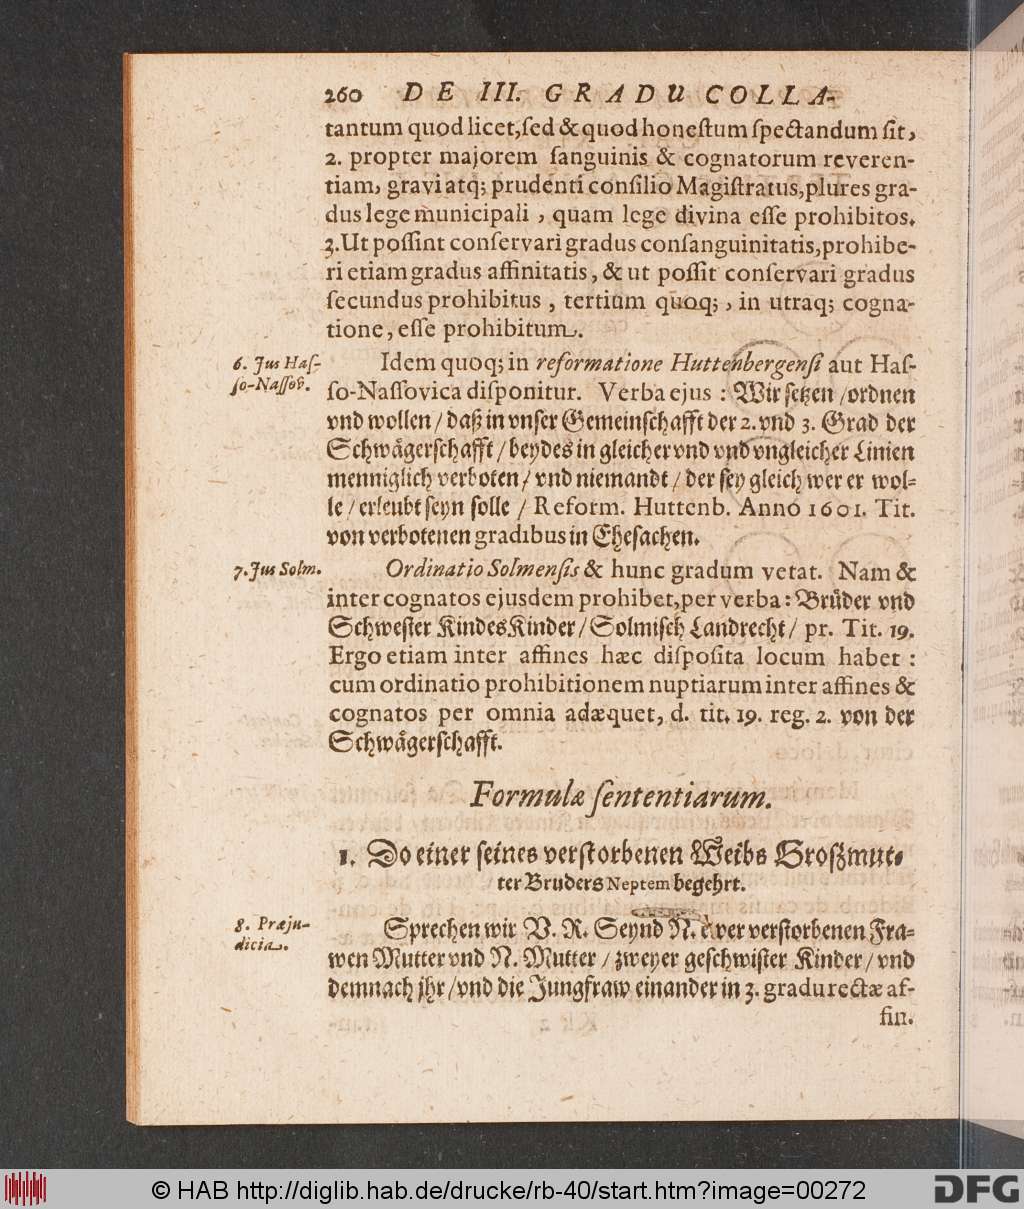 260 DE III. GRADU COLLA-
tantum quod licet, ſed & quod honeſtum ſpectandum ſit,
2. propter majorem ſanguinis & cognatorum reveren-
tiam, gravi atq; prudenti conſilio Magiſtratus, plures gra-
dus lege municipali , quam lege divina eſſe prohibitos.
3. Ut poſſint conſervari gradus conſanguinitatis, prohibe-
ri etiam gradus affinitatis, & ut poſſit conſervari gradus
ſecundus prohibitus , tertium quoq; , in utraq; cogna-
tione, eſſe prohibitum.
6. Jus Haſ-
ſo-Naſſov.
Idem quoq; in reformatione Huttenbergenſi aut Haſ-
ſo-Naſſovica diſponitur. Verba ejus : Wir ſetzen / ordnen
vnd wollen / daß in vnſer Gemeinſchafft der 2. vnd 3. Grad der
Schwaͤgerſchafft / beydes in gleicher vnd vnd vngleicher Linien
menniglich verboten / vnd niemandt / der ſey gleich wer er wol-
le / erleubt ſeyn ſolle / Reform. Huttenb. Anno 1601. Tit.
von verbotenen gradibus in Eheſachen.
7. Jus Solm.
Ordinatio Solmenſis & hunc gradum vetat. Nam &
inter cognatos ejusdem prohibet, per verba: Bruͤder vnd
Schweſter KindesKinder / Solmiſch Landrecht / pr. Tit. 19.
Ergo etiam inter affines hæc diſpoſita locum habet :
cum ordinatio prohibitionem nuptiarum inter affines &
cognatos per omnia adæquet, d. tit. 19. reg. 2. von der
Schwaͤgerſchafft.
Formulæ ſententiarum.
1. Do einer ſeines verſtorbenen Weibs Großmut-
ter Bruders Neptem begehrt.
8. Præju-
dicia.
Sprechen wir V. R. Seynd N. ewer verſtorbenen Fra-
wen Mutter vnd N. Mutter / zweyer geſchwiſter Kinder / vnd
demnach jhr / vnd die Jungfraw einander in 3. gradu rectæ af-
fin.
© HAB http://diglib.hab.de/drucke/rb-40/start.htm?image=00272
DFG